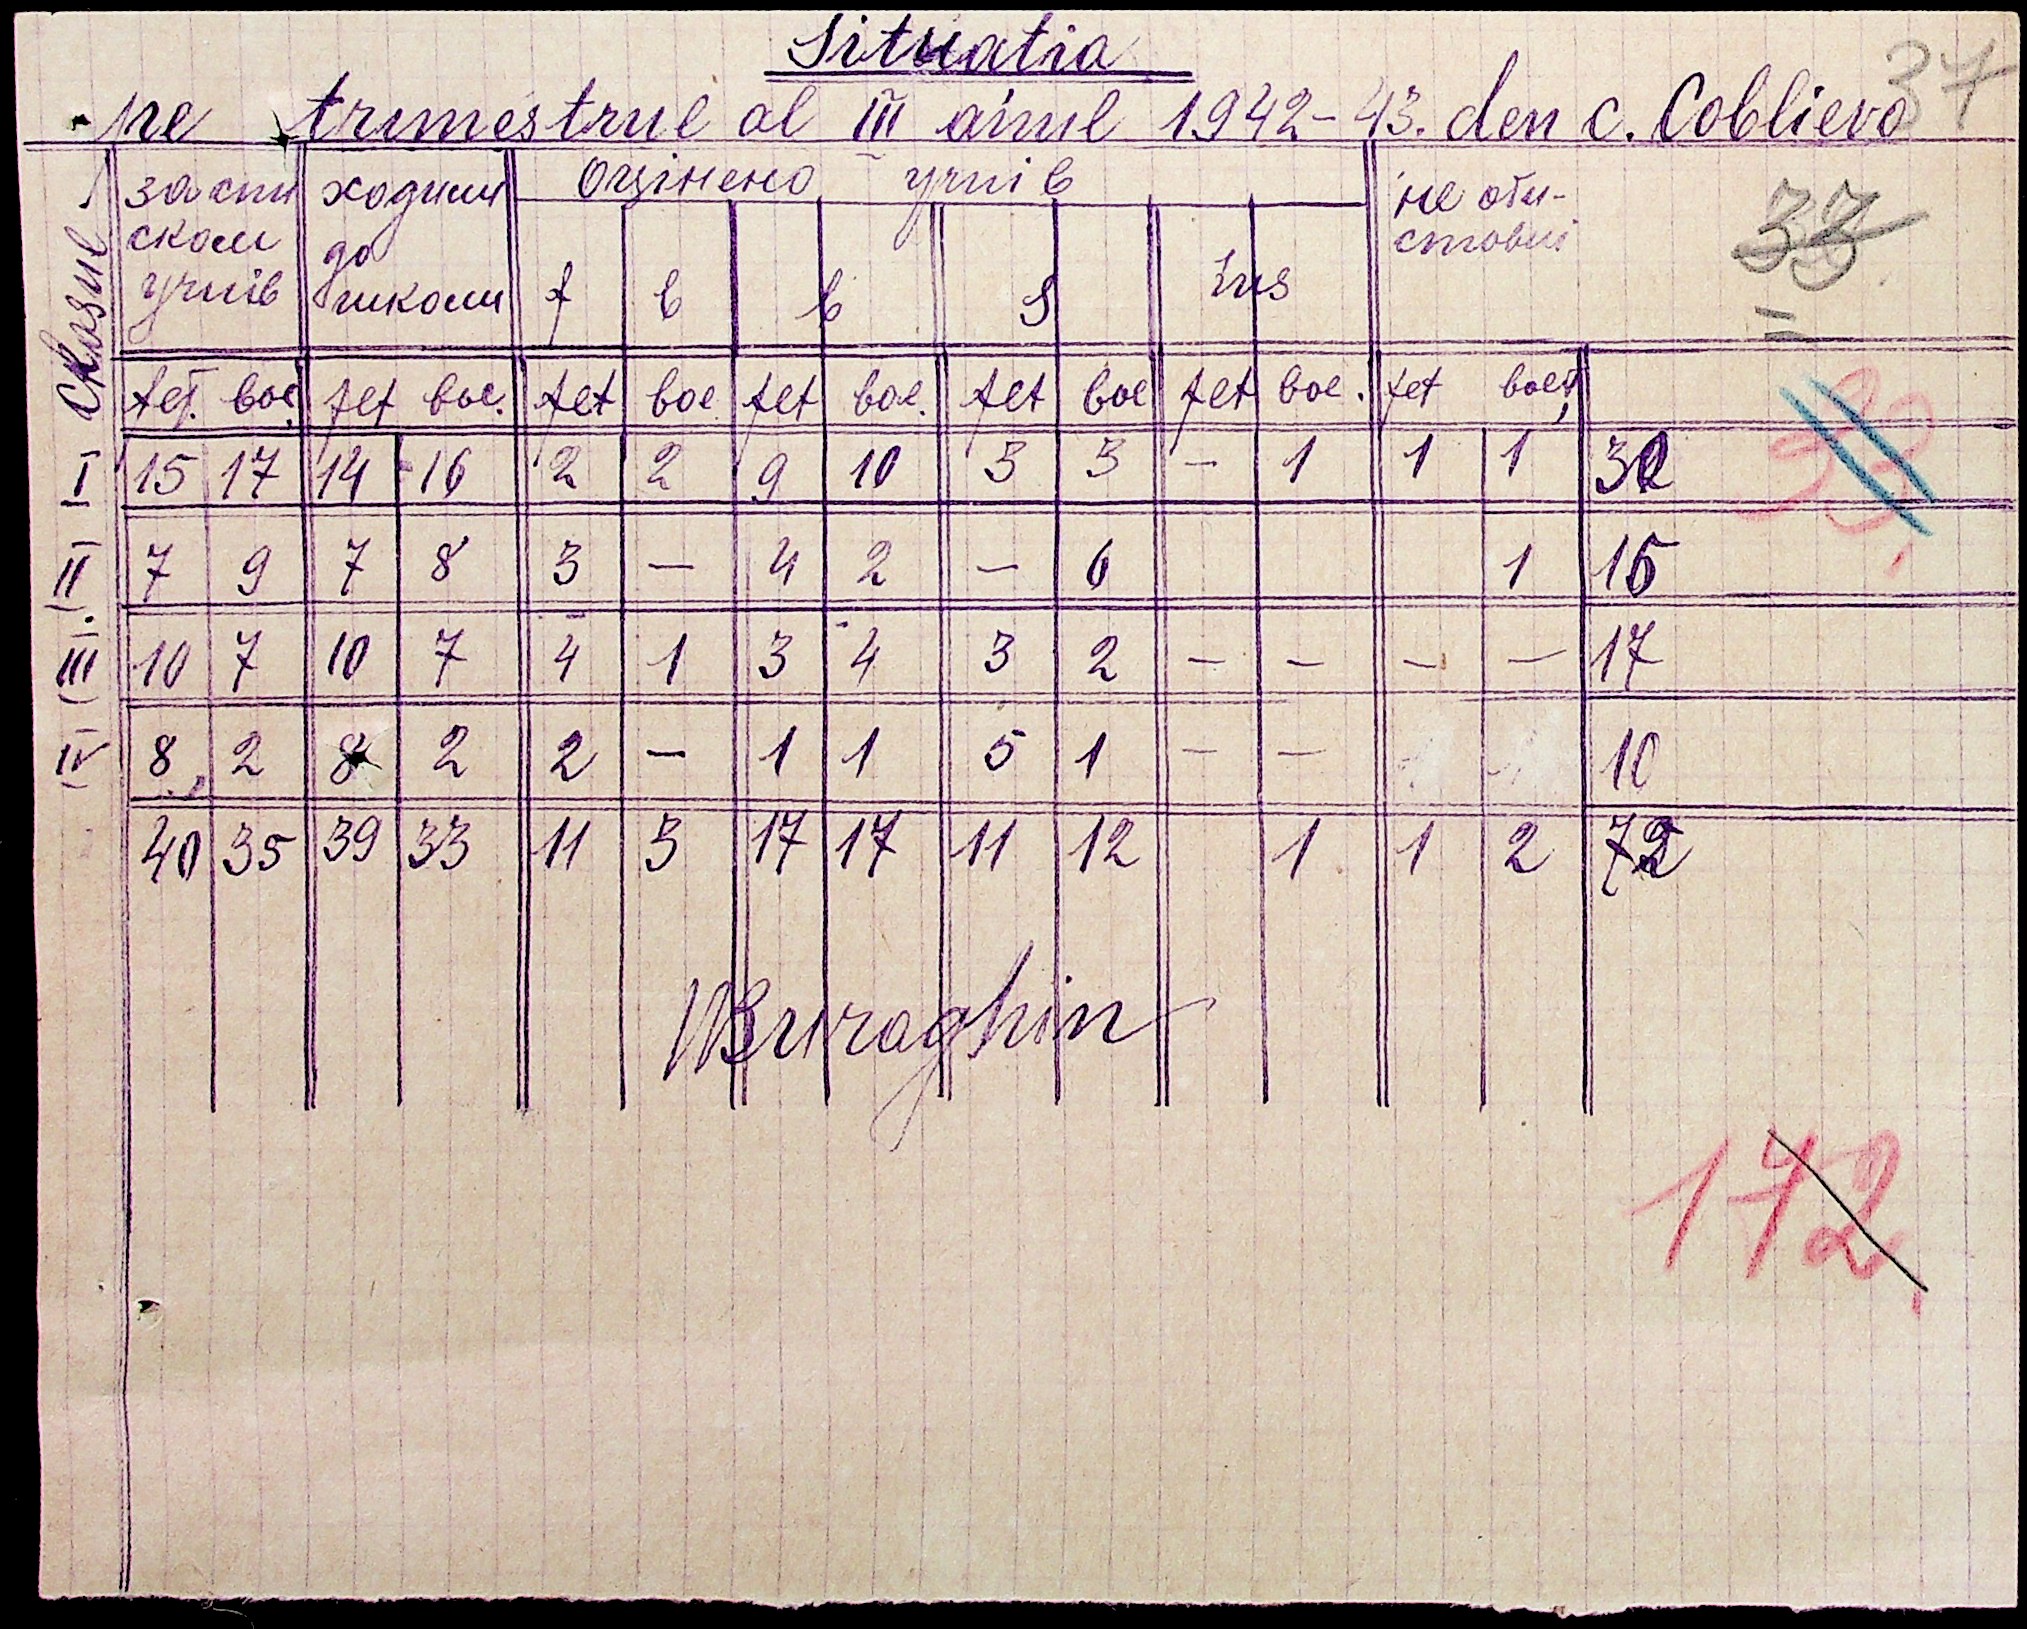 Situatia
pe trimestrul al III anul 1942-43. den c. Coblievo
37
Cklasul
за спи ском учнів ходили до школи Оцінено учнів не ати- стовні
33
f b b s ins
fet. boe. fet boe. fet boe fet boe. fet boe fet boe. fet boet
33
I 15 17 14 16 2 2 9 10 3 3 — 1 1 1 30
II 7 9 7 8 3 — 4 2 — 6 1 15
III 10 7 10 7 4 1 3 4 3 2 — — — — 17
IV 8 2 8 2 2 — 1 1 5 1 — — 10
40 35 39 33 11 3 17 17 11 12 1 1 2 72
Buraghin
172